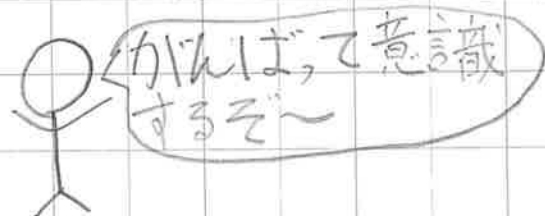 がんばって意識
するぞ〜